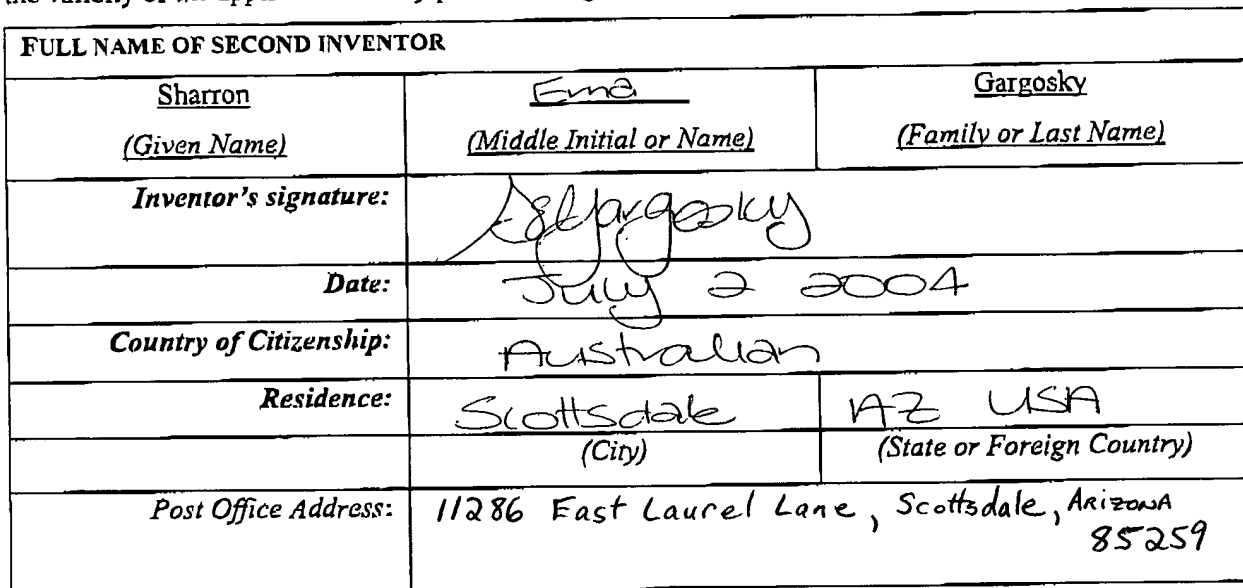 FULL NAME OF SECOND INVENTOR
Sharron Ema Gargosky
(Given Name) (Middle Initial or Name) (Family or Last Name)
Inventor's signature: SEGargosky
Date: July 2 2004
Country of Citizenship: Australian
Residence: Scottsdale AZ USA
(City) (State or Foreign Country)
Post Office Address: 11286 East Laurel Lane, Scottsdale, ARIZONA
85259